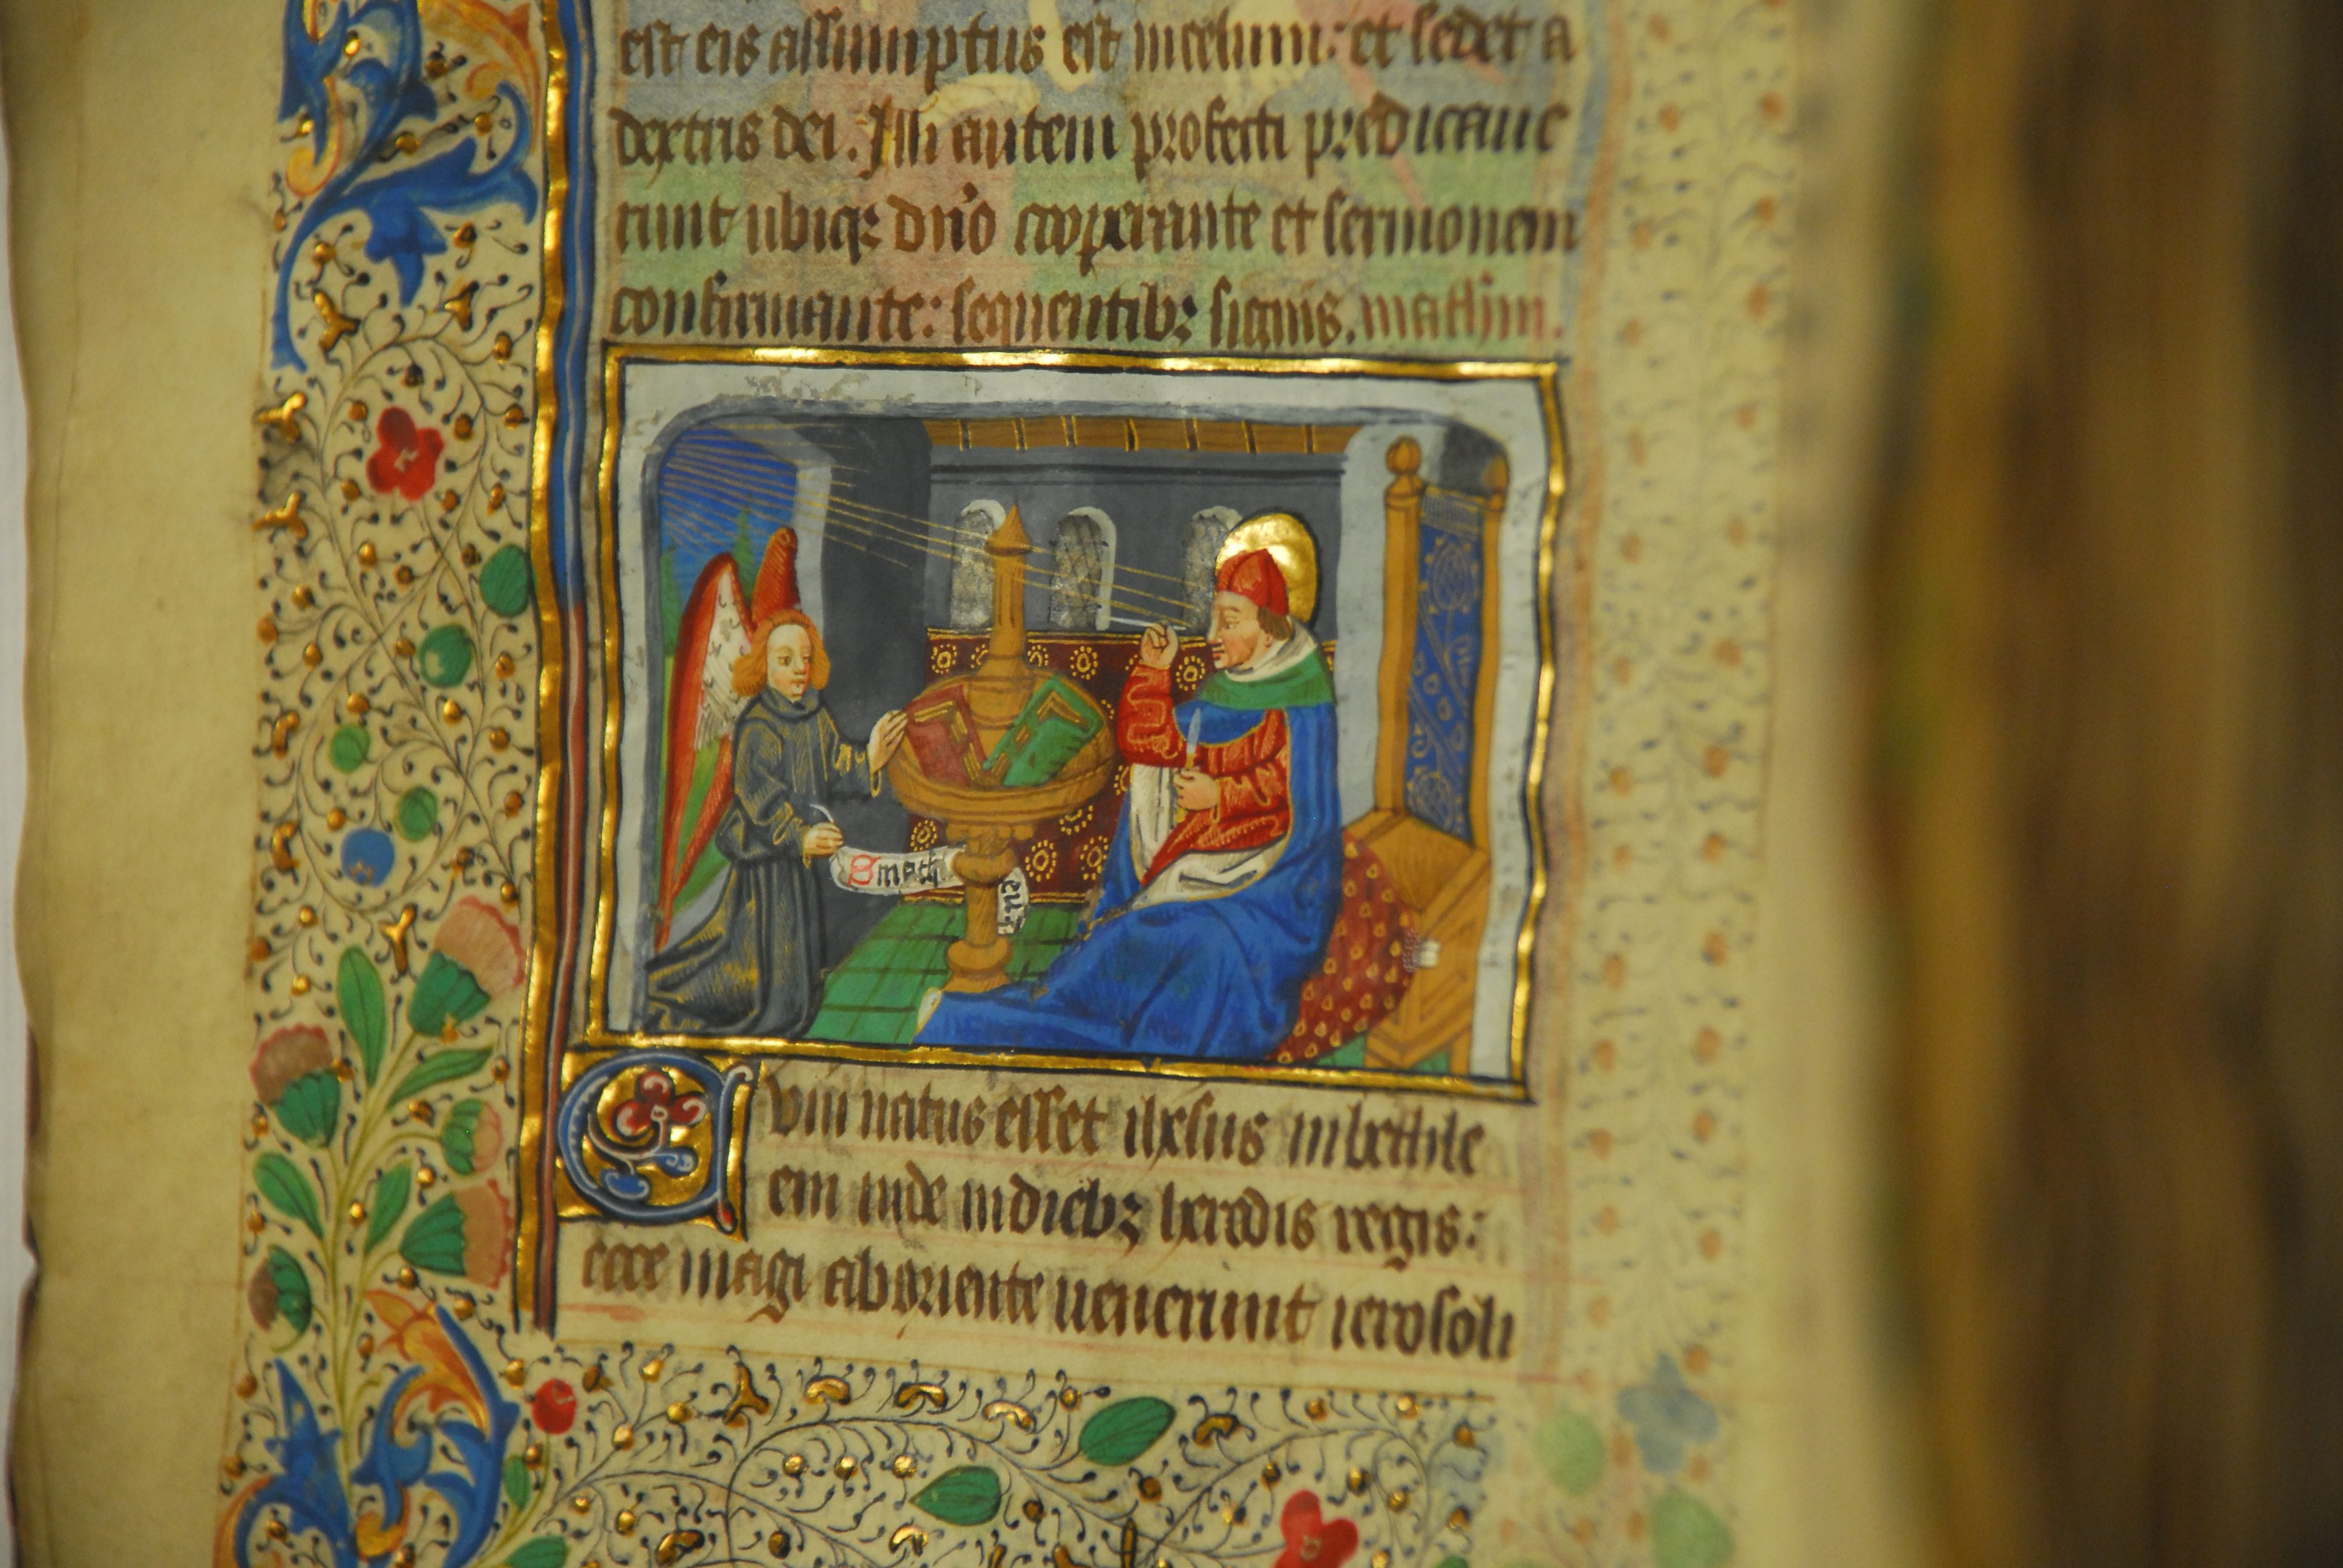 est eis assumptus est in celum: et sedet a
dextris dei. Illi autem profecti predicaue
runt ubiqꝫ dn̄o cooperante et sermonem
confirmante: sequentibꝫ signis. mathm̄.
S math
eu
Cum natus esset ihesus in bethle
em iude in diebꝫ herodis regis:
ecce magi ab oriente uenerunt ierosoli